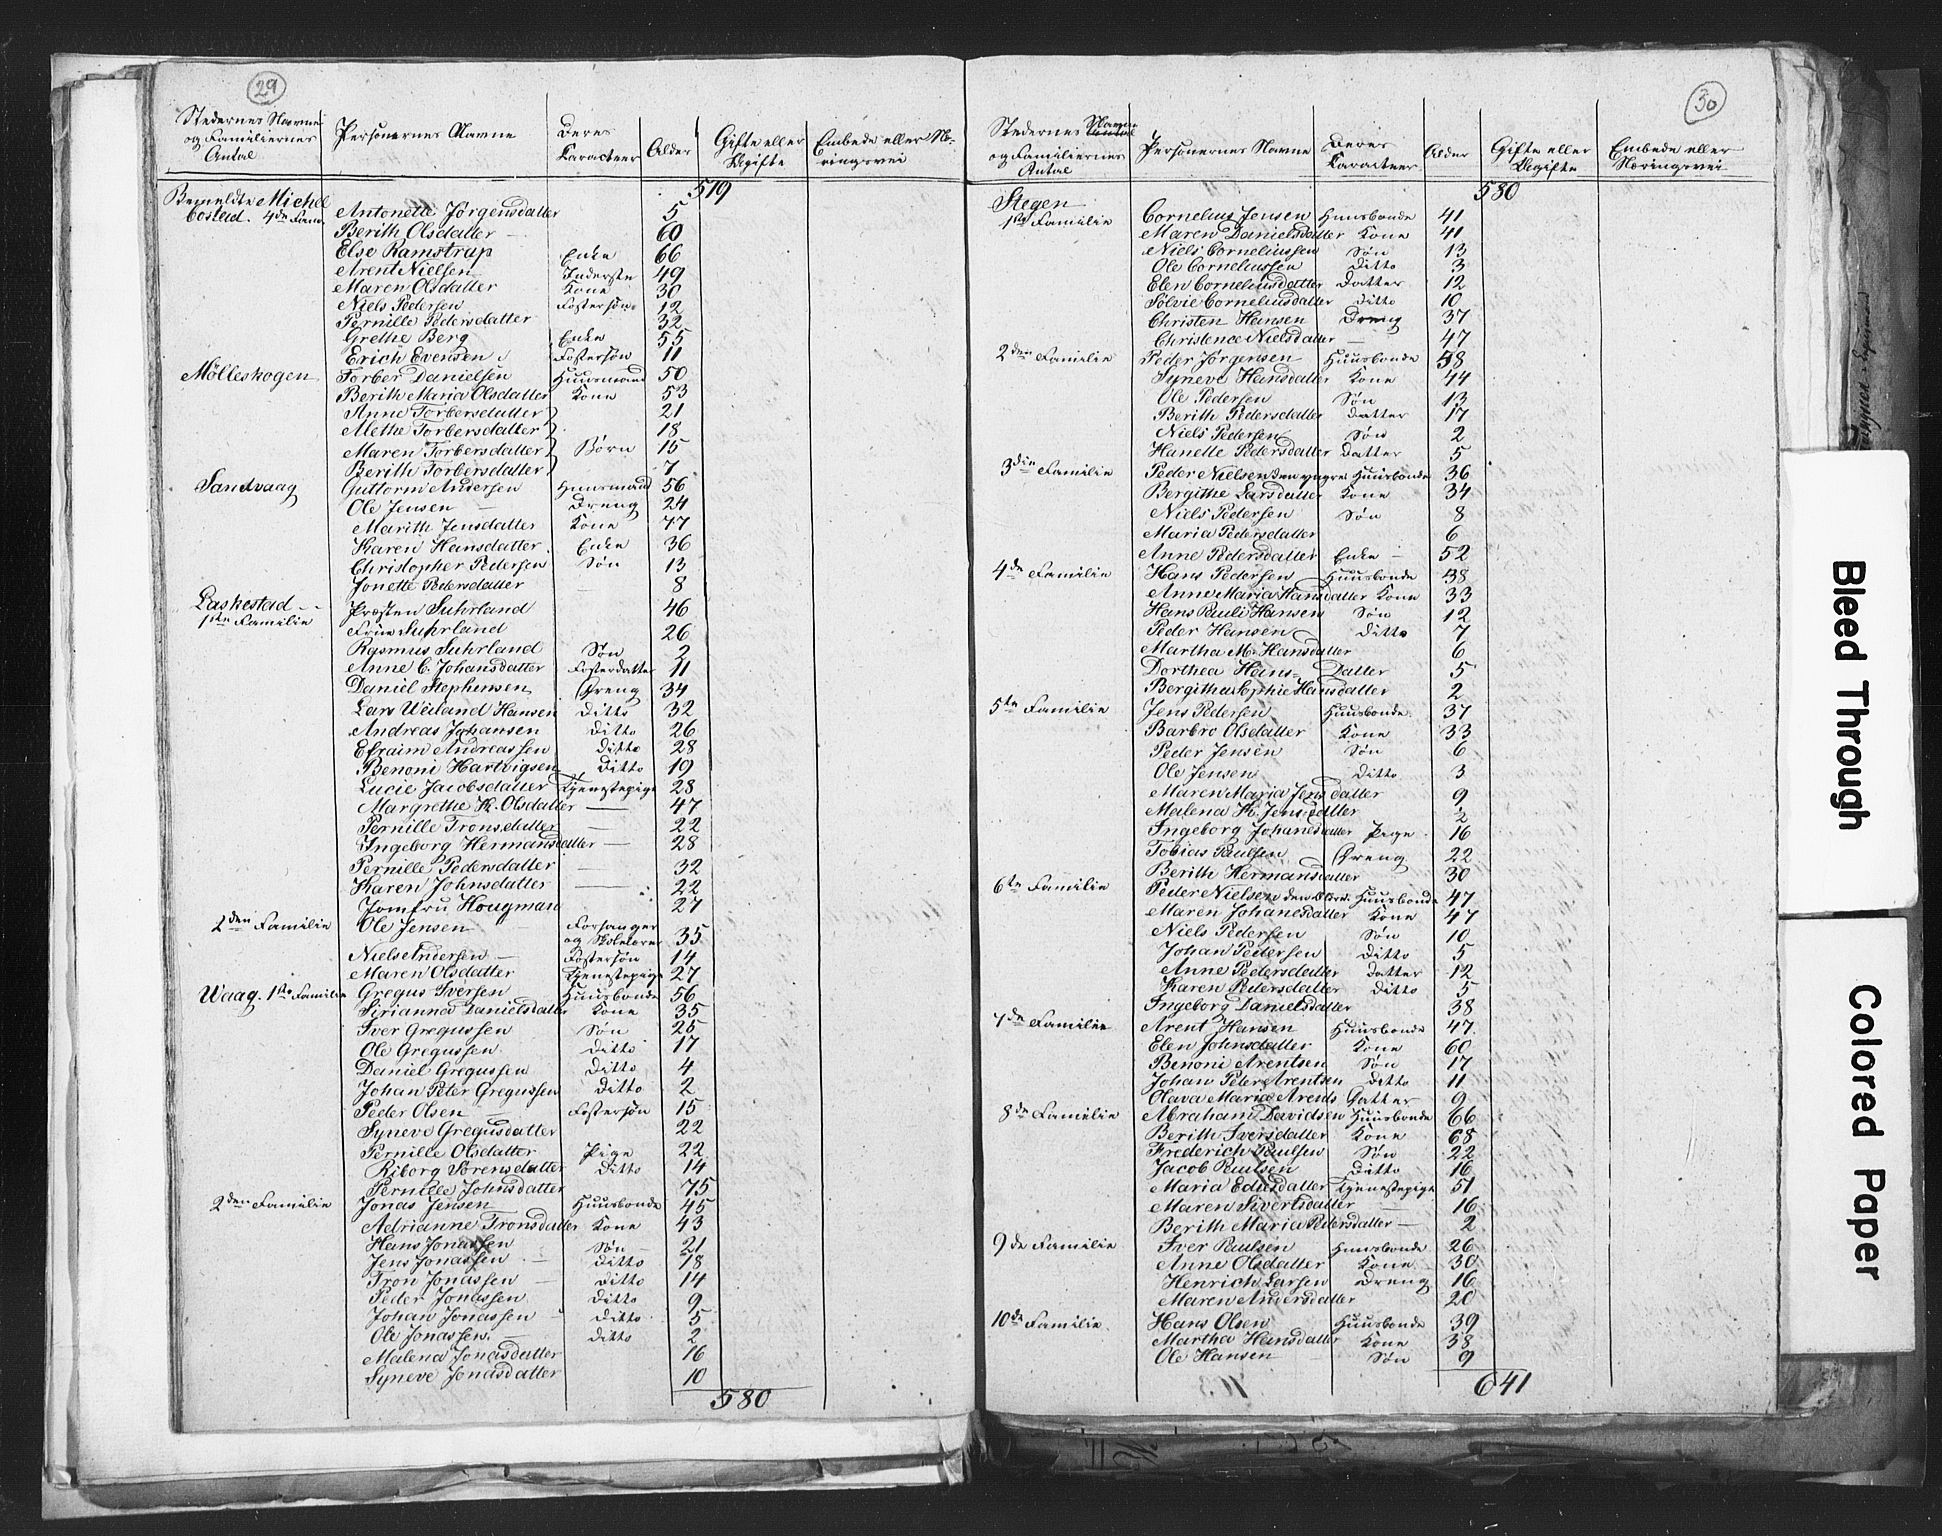 29
Stedernes Navne og Familiernes Antal | Personernes Navne | Deres Caracteer | Alder | Gifte eller Ugifte | Embede eller Næringsvei
519
Bemeldte Michelbostad. 4de Fam. Antonette Jörgensdatter 5
Berith Olsdatter 60
Else Ramstrup Enke 66
Arent Nielsen Inderste 49
Maren Olsdatter Kone 30
Niels Pedersen Fostersøn 12
Pernille Pedersdatter 32
Grethe Berg Enke 55
Erich Evensen Fostersøn 11
Mölleskogen Torber Danielsen Huusmand 50
Berith Maria Olsdatter Kone 53
Anne Torbersdatter 21
Methe Torbersdatter 18
Maren Torbersdatter Børn 15
Berith Torbersdatter 7
Sandvaag Guttorm Andersen Huusmand 56
Ole Jensen Dreng 24
Marith Jensdatter Kone 47
Karen Hansdatter Enke 36
Christopher Pedersen Søn 13
Jonette Pedersdatter 8
Laskestad
1ste Familie Præsten Suhrland 46
Frue Suhrland 26
Rasmus Suhrland Søn 2
Anne C. Johansdatter Fosterdatter 11
Daniel Stephensen Dreng 34
Lars Weiland Hansen Ditto 32
Andreas Johansen Ditto 26
Efraim Andreassen Ditto 28
Benoni Hartvigsen Ditto 19
Lucie Jacobsdatter Tjenestepige 28
Margrethe K. Olsdatter 47
Pernille Tronsdatter 22
Ingeborg Hermansdatter 28
Pernille Pedersdatter 32
Karen Johnsdatter 22
Jomfru Hougman 27
2den Familie Ole Jensen Forsanger og Skolelærer 35
Niels Andersen Fostersøn 14
Maren Olsdatter Tjenestepige 27
Waag. 1ste Familie Gregus Iversen Huusbonde 56
Sirianna Danielsdatter Kone 35
Iver Gregussen Søn 25
Ole Gregussen Ditto 17
Daniel Gregussen Ditto 4
Johan Peter Gregussen Ditto 2
Peder Olsen Fostersøn 15
Syneve Gregusdatter 22
Pernille Olsdatter Pige 22
Riborg Sörensdatter Ditto 14
Pernille Johnsdatter 75
2den Familie Jonas Jensen Huusbonde 45
Adrianne Tronsdatter Kone 43
Hans Jonassen Søn 21
Jens Jonassen Ditto 18
Tron Jonassen Ditto 14
Peder Jonassen Ditto 9
Johan Jonassen Ditto 5
Ole Jonassen Ditto 2
Malena Jonasdatter 16
Syneve Jonasdatter 10
580
30
Stedernes Navne og Familiernes Antal | Personernes Navne | Deres Caracteer | Alder | Gifte eller Ugifte | Embede eller Næringsvei
580
Stegen
1ste Familie Cornelius Jensen Huusbonde 41
Maren Danielsdatter Kone 41
Niels Corneliussen Søn 13
Ole Corneliussen Ditto 3
Elen Corneliusdatter Datter 12
Sølvie Corneliusdatter Ditto 10
Christen Hansen Dreng 37
Christence Nielsdatter 47
2den Familie Peder Jörgensen Huusbonde 58
Syneve Hansdatter Kone 44
Ole Pedersen Søn 13
Berith Pedersdatter Datter 17
Niels Pedersen Søn 2
Hanette Pedersdatter Datter 5
3die Familie Peder Nielsen den yngre Huusbonde 36
Bergithe Larsdatter Kone 34
Niels Pedersen Søn 8
Maria Pedersdatter 6
Anne Pedersdatter Enke 52
4de Familie Hans Pedersen Huusbonde 38
Anne Maria Hansdatter Kone 33
Hans Pauli Hansen Søn 12
Peder Hansen Ditto 7
Martha M. Hansdatter 6
Dorthea Hans-Datter 5
Bergitha Sophie Hansdatter 2
5te Familie Jens Pedersen Huusbonde 37
Barbro Olsdatter Kone 33
Peder Jensen Søn 6
Ole Jensen Ditto 3
Maren Maria Jensdatter 9
Malena K. Jensdatter ½
Ingeborg Johanesdatter Pige 16
Tobias Paulsen Dreng 22
Berith Hermansdatter 30
6te Familie Peder Nielsen den Huusbonde 47
Maren Johanesdatter Kone 47
Niels Pedersen Søn 10
Johan Pedersen Ditto 5
Anne Pedersdatter Datter 12
Karen Pedersdatter Ditto 5
Ingeborg Danielsdatter 38
7de Familie Arent Hansen Huusbonde 47
Elen Johnsdatter Kone 60
Benoni Arentsen Søn 17
Johan Peter Arentsen Ditto 11
Olava Maria Arends Datter 9
8de Familie Abraham Davidsen Huusbonde 66
Berith Iversdatter Kone 68
Frederich Paulsen Søn 22
Jacob Paulsen Ditto 16
Maria Tjenestepige 51
Maren Sivertsdatter 16
Berith Maria Pedersdatter 2
9de Familie Iver Paulsen Huusbonde 26
Anne Olsdatter Kone 30
Henrich Larsen Dreng 16
Maren Andersdatter 20
10de Familie Hans Olsen Huusbonde 39
Martha Hansdatter Kone 38
Ole Hansen Søn 9
641
Bleed Through
Colored Paper